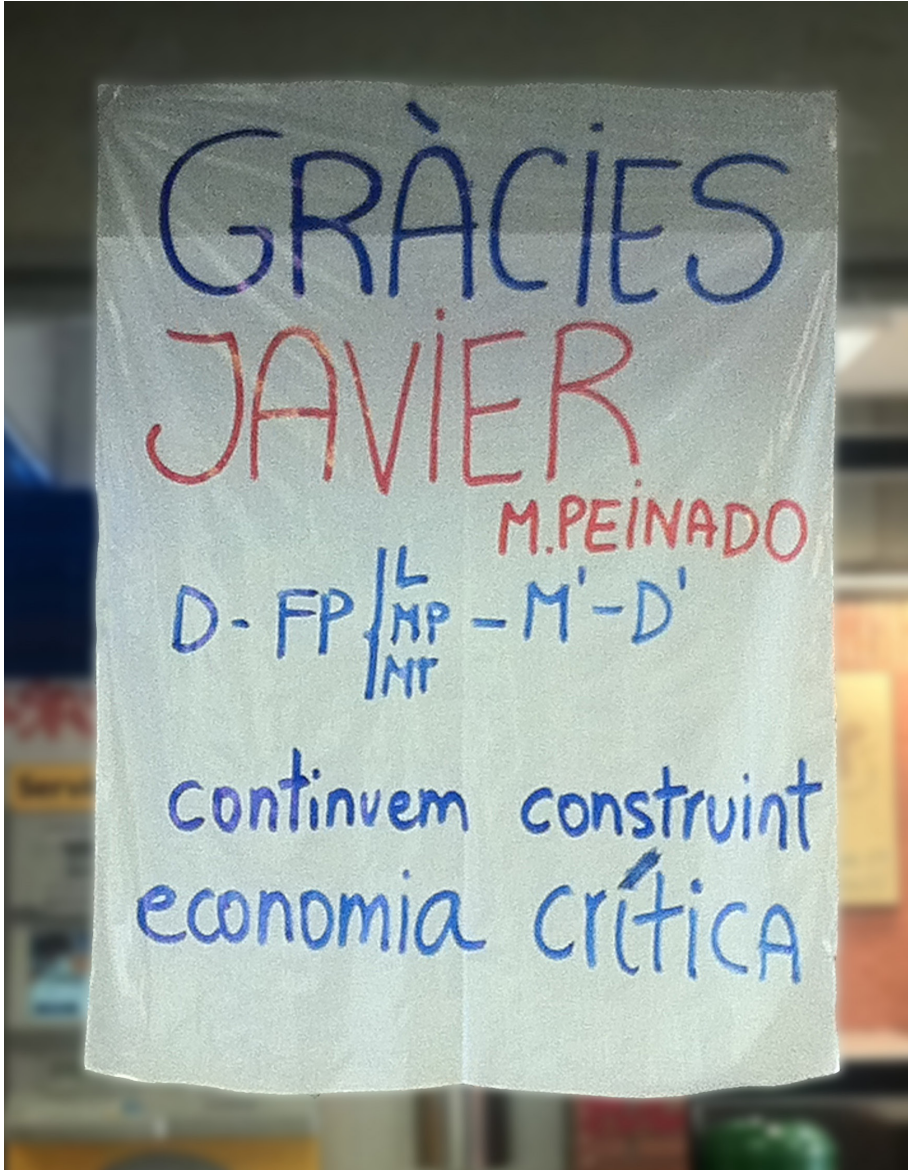 GRÀCIES
JAVIER
M.PEINADO
D - FP { L MP MT – M' – D'
continuem construint
economia crítica